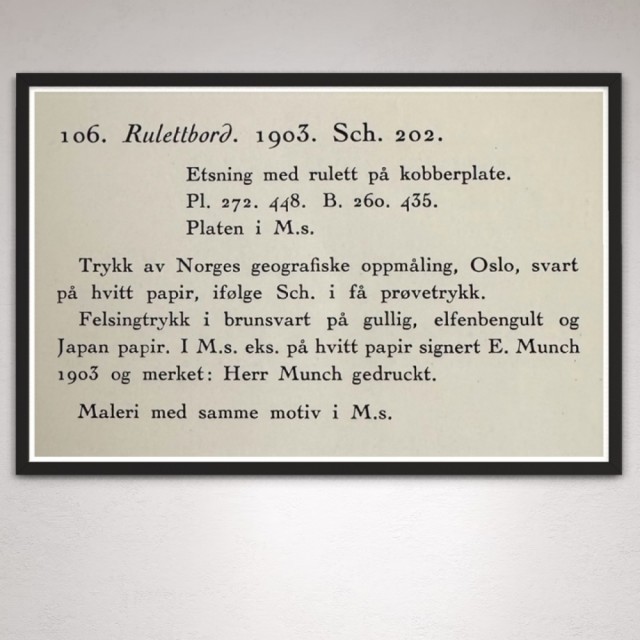 106. Rulettbord. 1903. Sch. 202.
Etsning med rulett på kobberplate.
Pl. 272. 448. B. 260. 435.
Platen i M.s.
Trykk av Norges geografiske oppmåling, Oslo, svart
på hvitt papir, ifølge Sch. i få prøvetrykk.
Felsingtrykk i brunsvart på gullig, elfenbengult og
Japan papir. I M.s. eks. på hvitt papir signert E. Munch
1903 og merket: Herr Munch gedruckt.
Maleri med samme motiv i M.s.